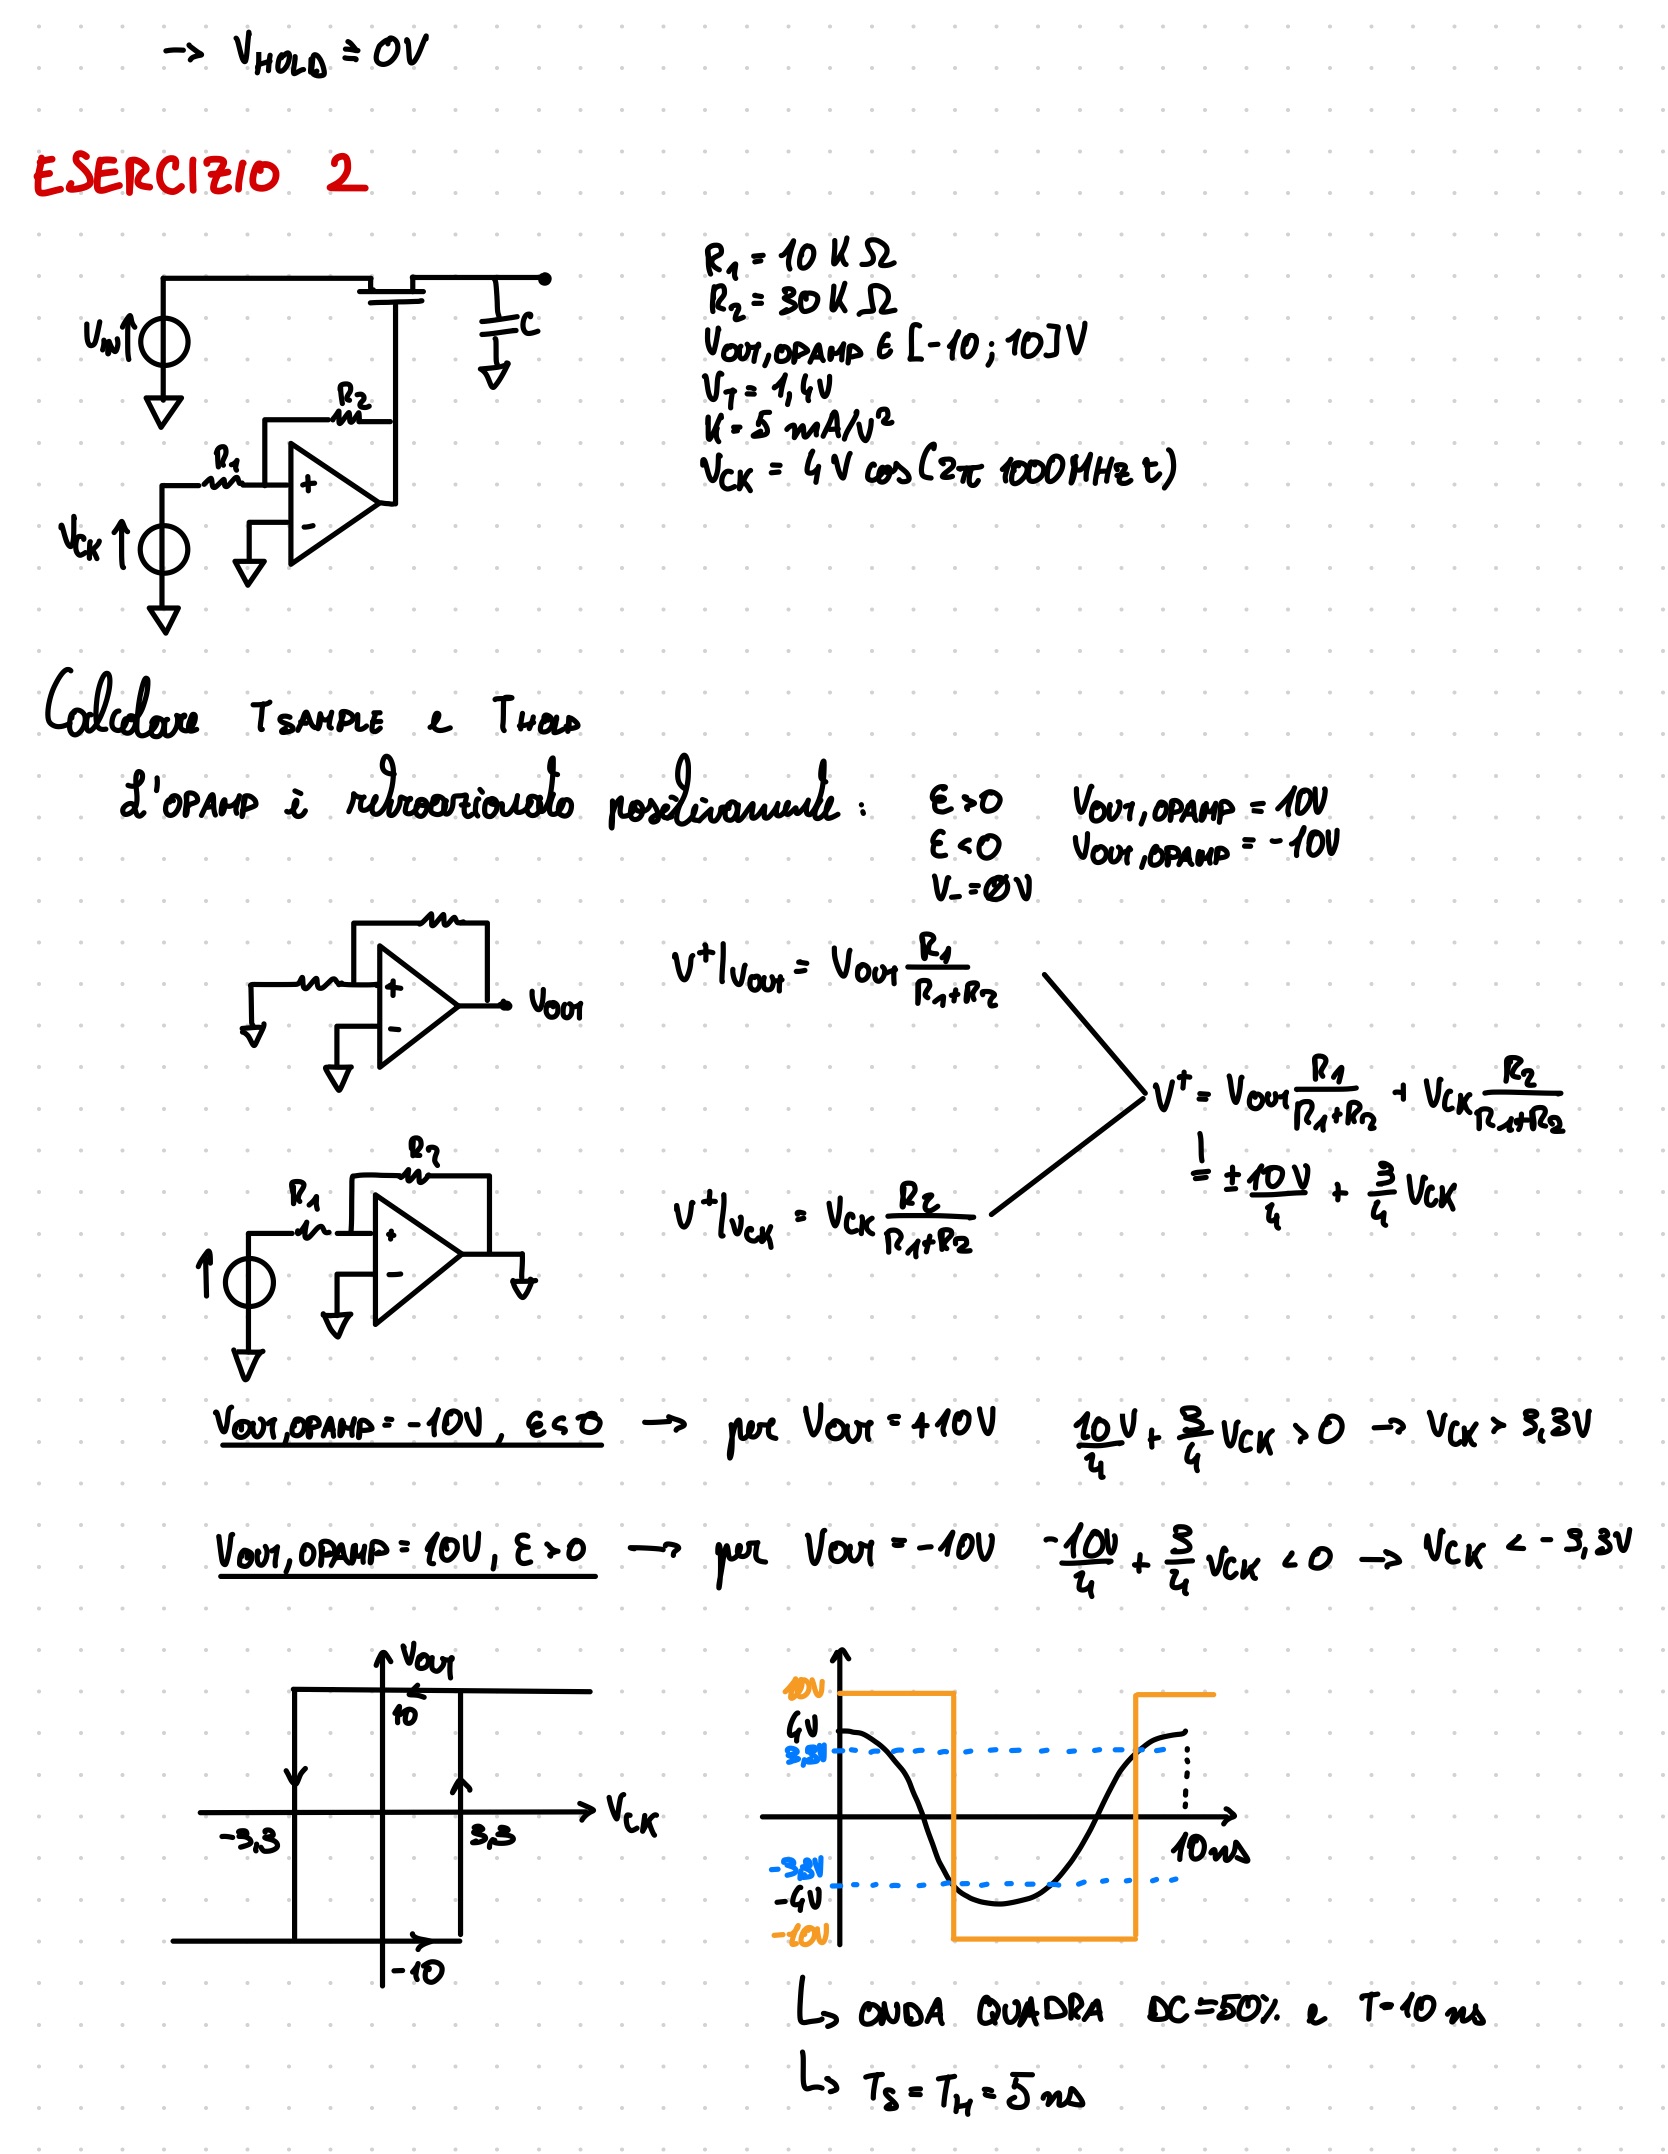 → V_HOLD = 0V
ESERCIZIO 2
R₁ = 10 K Ω
R₂ = 30 K Ω
V_OUT,OPAMP ∈ [-10 ; 10] V
V_T = 1,4V
K = 5 mA/V²
V_CK = 4 V cos(2π 1000MHz t)
V_IN
C
R₂
R₁
+
-
V_CK
Calcolare T_SAMPLE e T_HOLD
L'OPAMP è retroazionato positivamente :
ε > 0 V_OUT,OPAMP = 10V
ε < 0 V_OUT,OPAMP = -10V
V₋ = 0V
+
-
V_OUT
V⁺|V_OUT = V_OUT R₁/(R₁+R₂)
V⁺ = V_OUT R₁/(R₁+R₂) + V_CK R₂/(R₁+R₂)
= ± 10V/4 + 3/4 V_CK
R₂
R₁
+
-
V⁺|V_CK = V_CK R₂/(R₁+R₂)
V_OUT,OPAMP = -10V, ε < 0 → per V_OUT = +10V 10V/4 + 3/4 V_CK > 0 → V_CK > 3,3V
V_OUT,OPAMP = 10V, ε > 0 → per V_OUT = -10V -10V/4 + 3/4 V_CK < 0 → V_CK < -3,3V
V_OUT
10
V_CK
-3,3
3,3
-10
10V
4V
3,3V
10ns
-3,3V
-4V
-10V
↳ ONDA QUADRA DC=50% e T=10 ns
↳ T_S = T_H = 5 ns